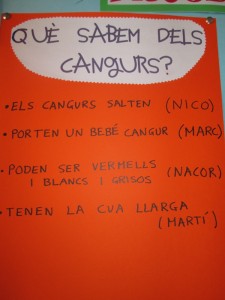 QUÈ SABEM DELS
CANGURS?
• ELS CANGURS SALTEN (NICO)
• PORTEN UN BEBÉ CANGUR (MARC)
• PODEN SER VERMELLS (NACOR)
I BLANCS I GRISOS
• TENEN LA CUA LLARGA
(MARTÍ)